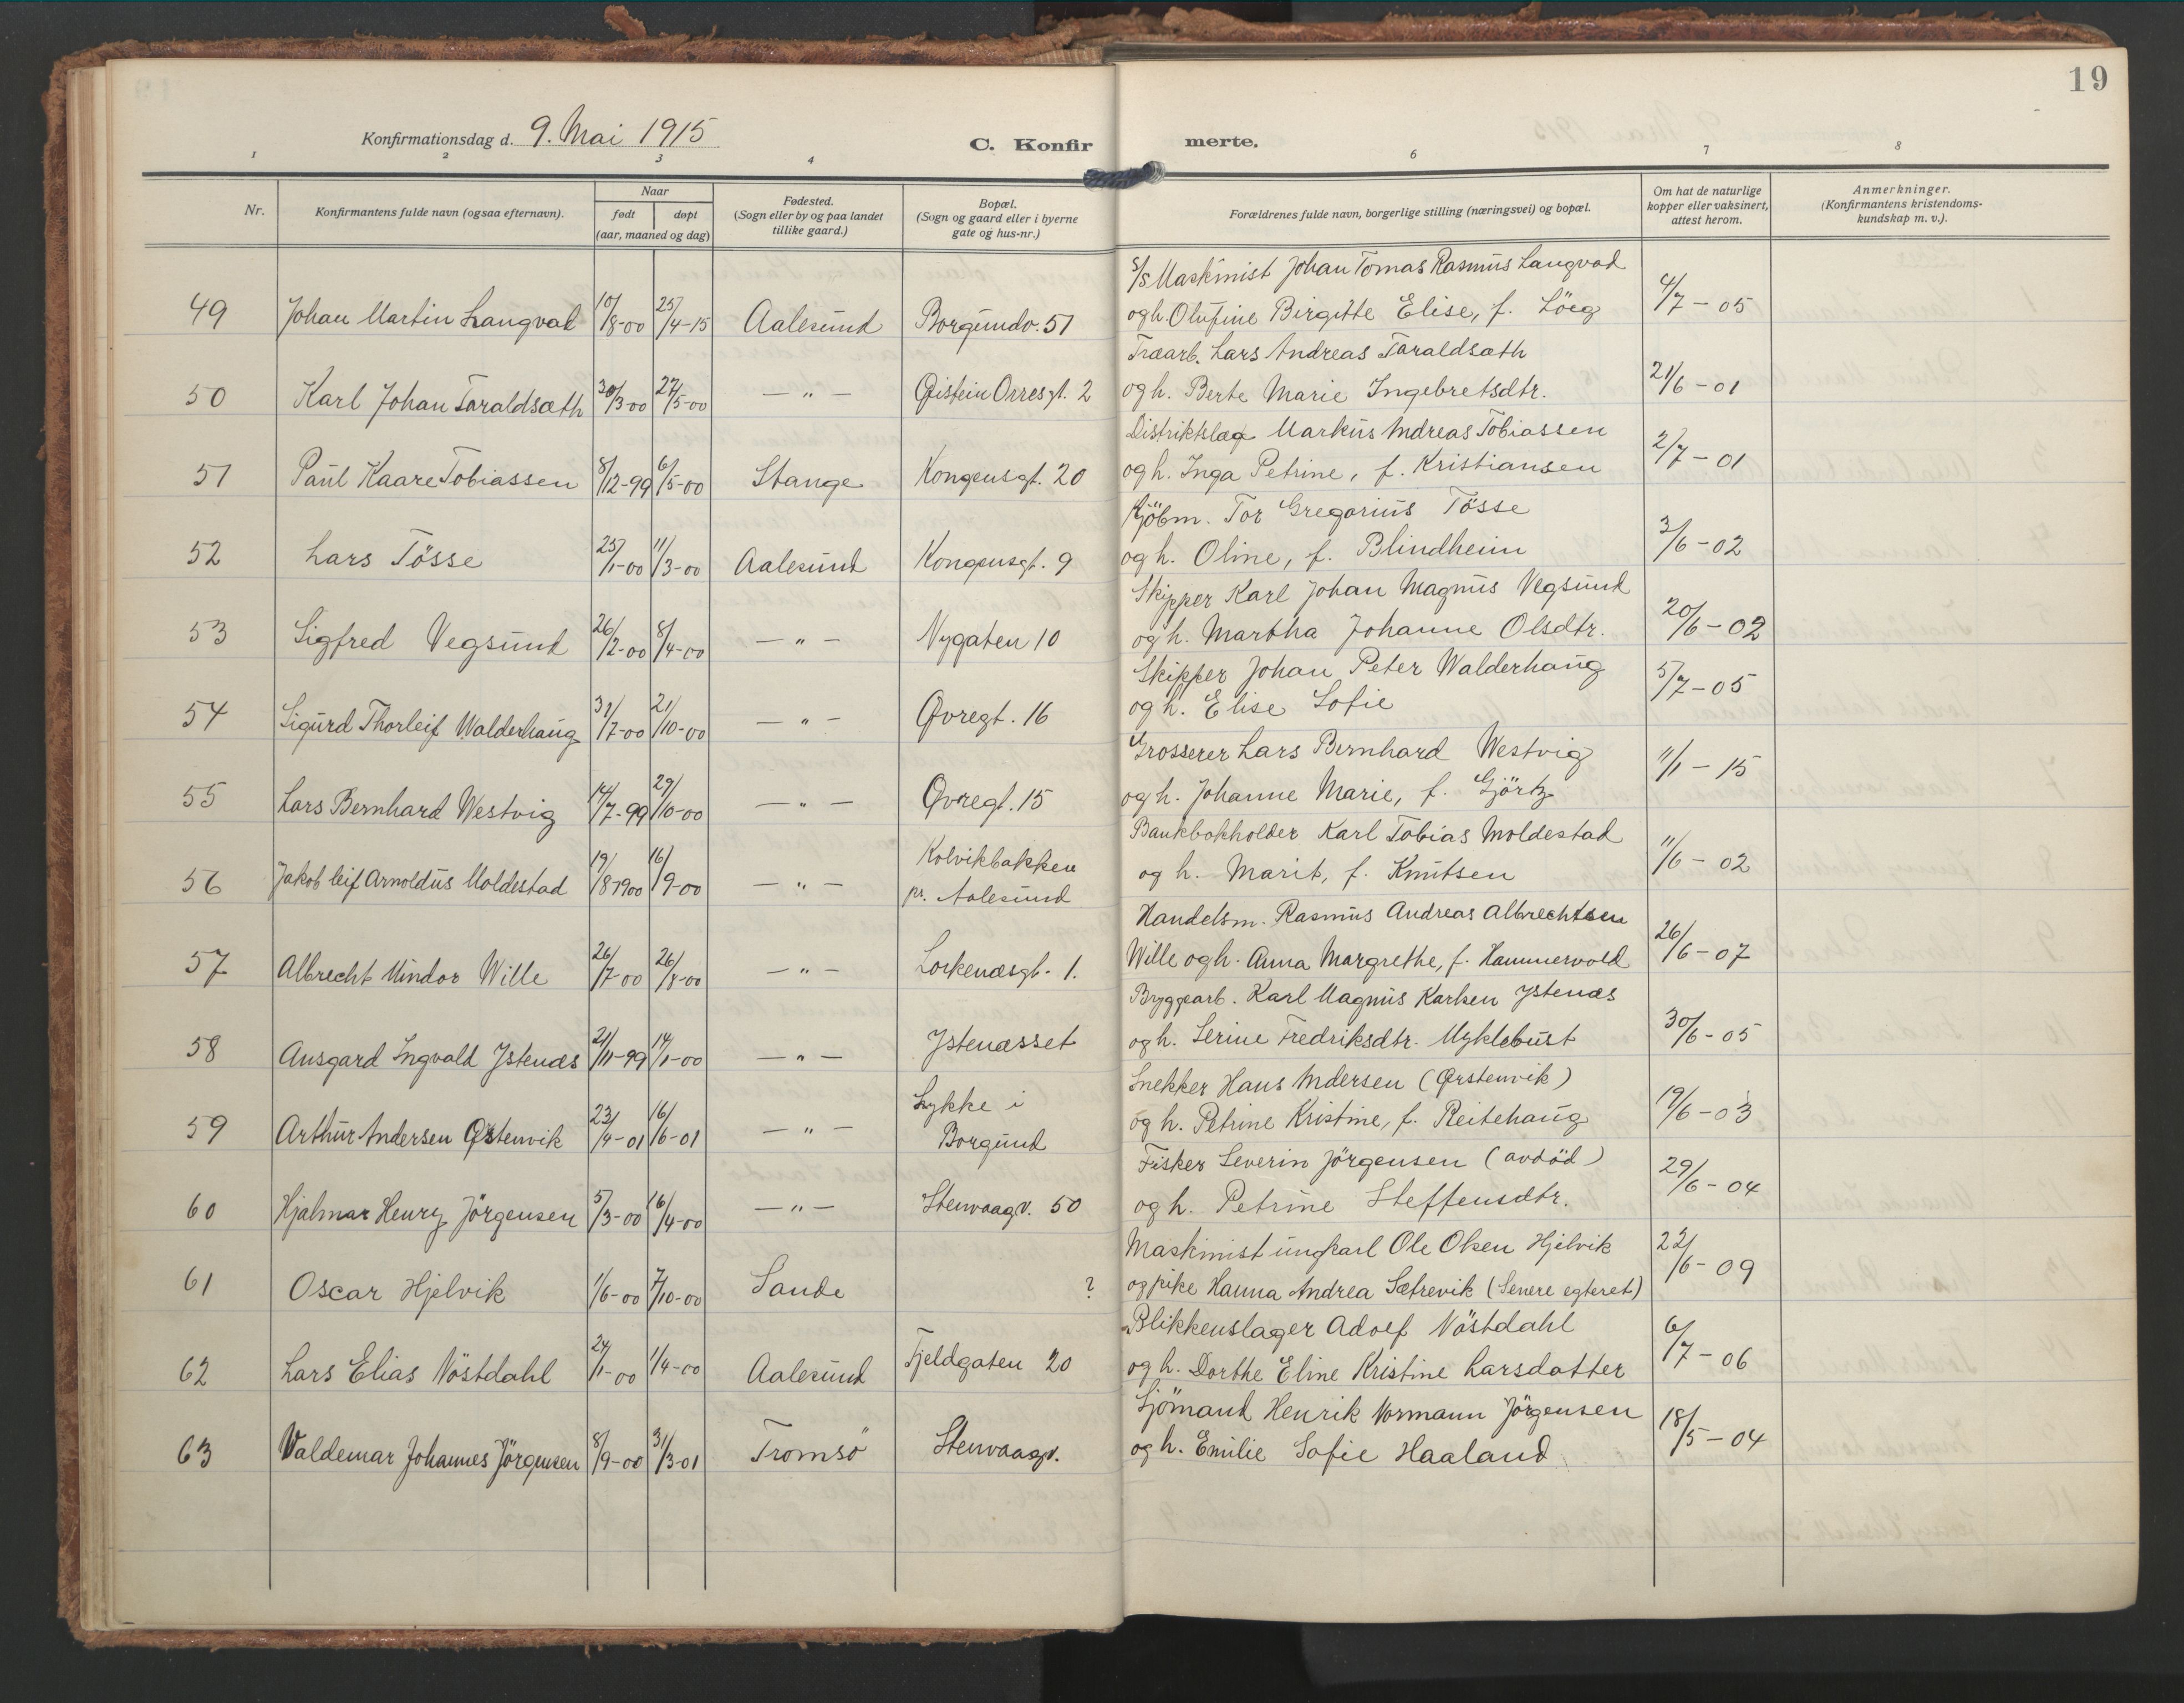 19
Konfirmationsdag d. 9. Mai 1915
C. Konfirmerte.
1 2 3 4 6 7 8
Nr.
Konfirmantens fulde navn (ogsaa efternavn).
Naar
født
døpt
(aar, maaned og dag)
Fødested.
(Sogn eller by og paa landet
tillike gaard.)
Bopæl.
(Sogn og gaard eller i byerne
gate og hus-nr.)
Forældrenes fulde navn, borgerlige stilling (næringsvei) og bopæl.
Om hat de naturlige
kopper eller vaksinert,
attest herom.
Anmerkninger.
(Konfirmantens kristendoms-
kundskap m. v.).
S/S Maskinist Johan Tomas Rasmus Langvad
49 Johan Martin Langvad 10/8-00 25/4-15 Aalesund Borgundv. 51 og h. Olufine Birgitte Elise, f. 4/7-05
Træarb. Lars Andreas Taraldsæth
50 Karl Johan Taraldsæth 30/3-00 27/5-00 — " — Øistein Orresgt. 2 og h. Berte Marie Ingebretsdtr. 21/6-01
Distriktslæge Markus Andreas Tobiassen
51 Paul Kaare Tobiassen 8/12-99 6/5-00 Stange Kongensgt. 20 og h. Inga Petrine, f. Kristiansen 2/7-01
Kjöbm. Tor Gregorius Tösse
52 Lars Tösse 25/1-00 11/3-00 Aalesund Kongensgt. 9 og h. Oline, f. Blindheim 3/6-02
Skipper Karl Johan Magnus Vegsund
53 Sigfred Vegsund 26/2-00 8/4-00 — " — Nygaten 10 og h. Martha Johanne Olsdtr. 20/6-02
Skipper Johan Peter Walderhaug
54 Sigurd Thorleif Walderhaug 31/7-00 21/10-00 — " — Øvregt. 16 og h. Elise Sofie 5/7-05
Grosserer Lars Bernhard Westvig
55 Lars Bernhard Westvig 14/7-99 29/10-00 — " — Øvregt. 15 og h. Johanne Marie, f. Gjörtz 11/1-15
Kolvikbakken Bankbokholder Karl Tobias Moldestad
56 Jakob Leif Arnoldus Moldestad 19/8 1900 16/9-00 — " — pr. Aalesund og h. Marit, f. Knutsen 11/6-02
Handelsm. Rasmus Andreas Albrechtsen
57 Albrecht Mindor Wille 26/7-00 26/8-00 — " — Lorkenæsgt. 1. Wille og h. Anna Margrethe, f. Hammervold 26/6-07
Bryggearb. Karl Magnus Karlsen Ystenæs
58 Ansgard Ingvald Ystenæs 21/11-99 14/1-00 — " — Ystenæsset og h. Serine Fredriksdtr. Myklebust 30/6-05
Lykke i Snekker Hans Andersen (Ørstenvik)
59 Arthur Andersen Østenvik 23/4-01 16/6-01 — " — Borgund og h. Petrine Kristine, f. Reitehaug 19/6-03
Fisker Severin Jörgensen (avdöd)
60 Hjalmar Henry Jörgensen 5/3-00 16/4-00 — " — Stenvaagv. 50 og h. Petrine Steffensdtr. 29/6-04
Maskinist ungkarl Ole Olsen Hjelvik
61 Oscar Hjelvik 1/6-00 7/10-00 Sande ? og pike Hanna Andrea Sætrevik (Senere egteret) 22/6-09
Blikkenslager Adolf Nöstdahl
62 Lars Elias Nöstdahl 24/1-00 1/4-00 Aalesund Fjeldgaten 20 og h. Dorthe Eline Kristine Larsdatter 6/7-06
Sjömand Henrik Normann Jörgensen
63 Valdemar Johannes Jörgensen 8/9-00 31/3-01 Tromsö Stenvaagv. og h. Emilie Sofie Haaland 18/5-04